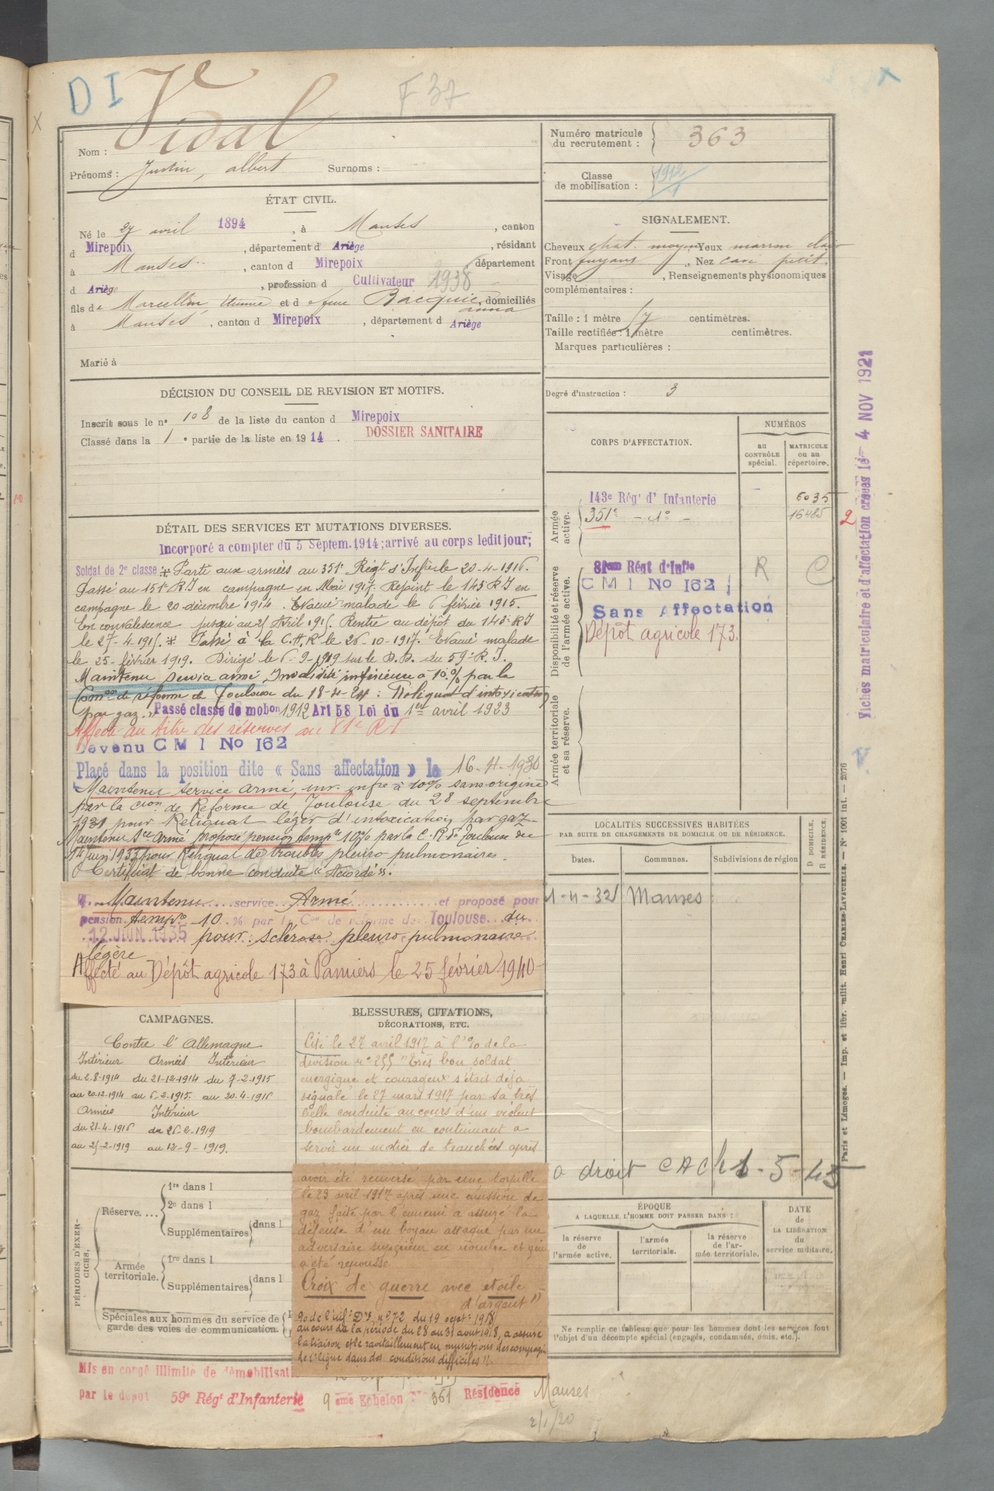 D I
F 37
Vidal
Nom :
Prénoms : Justin, albert Surnoms :
ÉTAT CIVIL.
Né le 27 avril 1894, à Manses, canton
d Mirepoix, département d Ariège, résidant
à Manses, canton d Mirepoix département
d Ariège, profession d Cultivateur 1938
fils de Marcellin, Etienne et de feue Bacquié anna, domiciliés
à Manses, canton d Mirepoix, département d Ariège
Marié à
DÉCISION DU CONSEIL DE REVISION ET MOTIFS.
Inscrit sous le n° 108 de la liste du canton d Mirepoix
Classé dans la 1e partie de la liste en 1914. DOSSIER SANITAIRE
DÉTAIL DES SERVICES ET MUTATIONS DIVERSES.
Incorporé a compter du 5 Septem. 1914; arrivé au corps ledit jour;
Soldat de 2e classe; * Parti aux armées au 351e Regt d'Inf le 20-4-1916.
Passé au 151e R.I en campagne en Mai 1917. Rejoint le 143 R I en
campagne le 20 décembre 1914. Evacué malade le 6 février 1915.
En convalescence jusqu'au 25 Avril 1915. Rentré au dépôt du 143e RI
le 27-4-1915. * Passé à la C.H.R le 26-10-1917. Evacué malade
le 25 février 1919. Dirigé le 6-9-1919 sur le D.D. du 59e R.I.
Maintenu service armé, Invalidité inférieure à 10% par la
Comon de réforme de Toulouse du : Reliquat d'intoxication
par gaz. Passé classe de mobon 1912 Art 58 Loi du 1er avril 1923
Affecté au titre des réserves au 81e RI
Devenu C M I No 162
Placé dans la position dite « Sans affectation » le 16-4-1930
Maintenu service armé, inv. infre à 10% sans origine
par la Cion de Réforme de Toulouse du 28 septembre
1931 pour Reliquat léger d'intoxication par gaz
Maintenu Sce armé proposé pension tempre 10% par la C. R. de Toulouse du
14 juin 1933 pour Reliquat de troubles pleuro pulmonaires.
Certificat de bonne conduite "Accordé".
Maintenu service Armé et proposé pour
pension temp. 10 % par la Con de réforme de Toulouse du
12 JUIN 1935 pour : sclérose pleuro-pulmonaire
légère
Affecté au Dépôt agricole 173 à Pamiers le 25 février 1940
CAMPAGNES.
Contre l'Allemagne
Intérieur Armées Intérieur
du 2-8-1914 du 21-12-1914 du 7-2-1915
au 20-12-1914 au 6-2-1915 au 20-4-1916
Armées Intérieur
du 21-4-1916 du 26-2-1919
au 25-2-1919 au 12-9-1919.
BLESSURES, CITATIONS,
DÉCORATIONS, ETC.
Cité le 27 avril 1917 à l'% de la
division n° 255 "Très bon soldat
énergique et courageux s'était déjà
signalé le 27 mars 1917 par sa très
belle conduite au cours d'un violent
bombardement en continuant à
servir un mortier de tranchées après
avoir été renversé par une torpille
le 23 avril 1917 après une émission de
gaz faite par l'ennemi a assuré la
défense d'un boyau attaqué par un
adversaire supérieur en nombre et qui
a été repoussé
Croix de guerre avec étoile
d'argent"
%de l'inf. D.e n° 72 du 19 sept. 1918
au cours de la période du 28 au 31 août 1918, a assuré
la liaison et le ravitaillement en munitions des compagnies
de 1e ligne dans des conditions difficiles".
PÉRIODES D'EXERCICES.
Réserve....
1re dans l
2e dans l
Supplémentaires dans l
Armée
territoriale.
1re dans l
Supplémentaires dans l
Spéciales aux hommes du service de
garde des voies de communication.
Mis en congé illimité de démobilisat
par le dépôt 59e Régt d'Infanterie 9 ème Echelon N° 351 Résidence Manses
2/1/20
Numéro matricule
du recrutement : 363
Classe
de mobilisation : 1912
1
SIGNALEMENT.
Cheveux chat. moyen Yeux marron clair
Front fuyant, Nez cave petit.
Visage, Renseignements physionomiques
complémentaires :
Taille : 1 mètre 57 centimètres.
Taille rectifiée : 1 mètre centimètres.
Marques particulières :
Degré d'instruction : 3
CORPS D'AFFECTATION.
NUMÉROS
au
CONTRÔLE
spécial.
MATRICULE
ou au
répertoire.
Armée
active.
143e Régt d'Infanterie 6035
351e - d° - 16485 2
Disponibilité et réserve
de l'armée active.
81me Régt d'Infie R C
C M I No 162
Sans Affectation
Dépôt agricole 173.
Armée territoriale
et sa réserve.
LOCALITÉS SUCCESSIVES HABITÉES
PAR SUITE DE CHANGEMENTS DE DOMICILE OU DE RÉSIDENCE.
Dates. Communes. Subdivisions de région
D DOMICILE,
R RÉSIDENCE.
1-4-32 Manses
a droit CACh 1-5-45
ÉPOQUE
A LAQUELLE L'HOMME DOIT PASSER DANS :
la réserve
de
l'armée active.
l'armée
territoriale.
la réserve
de l'ar-
mée territoriale.
DATE
de
LA LIBÉRATION
du
service militaire.
Ne remplir ce tableau que pour les hommes dont les services font
l'objet d'un décompte spécial (engagés, condamnés, omis, etc.).
Fiches matriculaire et d'affectation crées le 4 NOV 1921
Paris et Limoges. — Imp. et libr. milit. Henri CHARLES-LAVAUZELLE. — N° 1001 int. — 2076